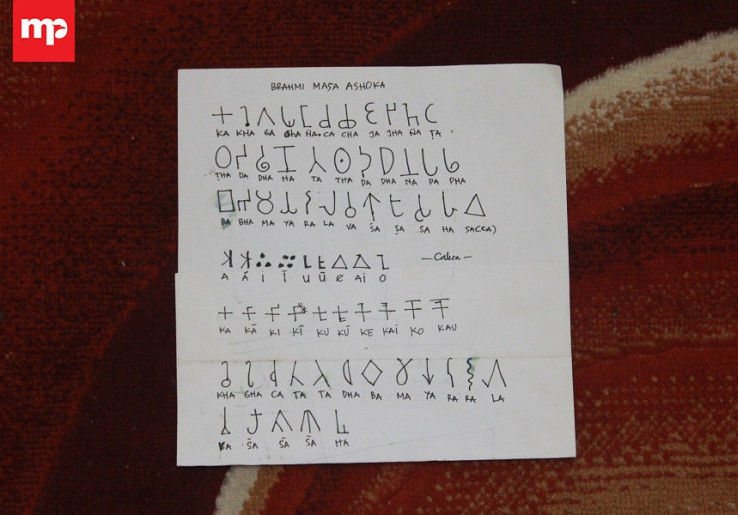 mp
BRAHMI MASA ASHOKA
𑀓 𑀔 𑀕 𑀖 𑀗 𑀘 𑀙 𑀚 𑀛 𑀜 𑀝
KA KHA GA GHA ṄA CA CHA JA JHA ÑA ṬA
𑀞 𑀟 𑀠 𑀡 𑀢 𑀣 𑀤 𑀥 𑀦 𑀧 𑀨
ṬHA DA DHA NA TA THA DA DHA NA PA PHA
𑀩 𑀪 𑀫 𑀬 𑀭 𑀮 𑀯 𑀰 𑀱 𑀲 𑀳
BA BHA MA YA RA LA VA ŚA ṢA SA HA SA(CCA)
𑀅 𑀆 𑀇 𑀈 𑀉 𑀊 𑀏 𑀐 𑀑
A Á I Ī U Ū E AI O
𑀓 𑀓𑀸 𑀓𑀺 𑀓𑀻 𑀓𑀼 𑀓𑀽 𑀓𑁂 𑀓𑁃 𑀓𑁄 𑀓𑁅
KA KĀ KI KĪ KU KŪ KE KAI KO KAU
KHA GHA CA TA TA DHA BA MA YA RA RA LA
ŚA ŚA ŚA HA